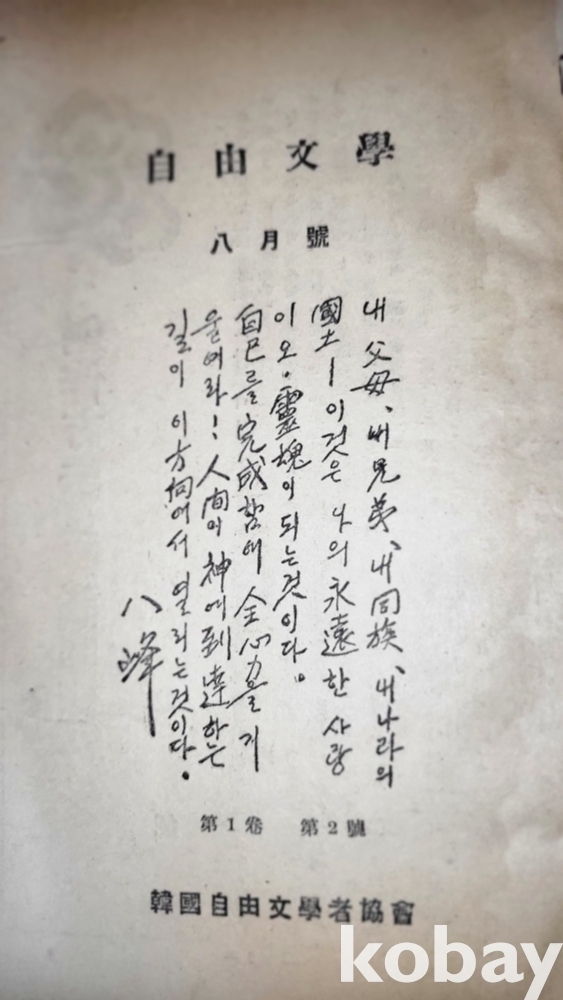 自由文學
八月號
내 父母、내 兄弟、내 同族、내 나라의
國土ㅡ이것은 나의 永遠한 사랑
이오. 靈魂이 되는것이다.
自己를 完成함에 全心力을 기
울여라! 人間이 神에 到達하는
길이 이 方向에서 열리는것이다.
八峰
第1卷 第2號
韓國自由文學者協會
kobay